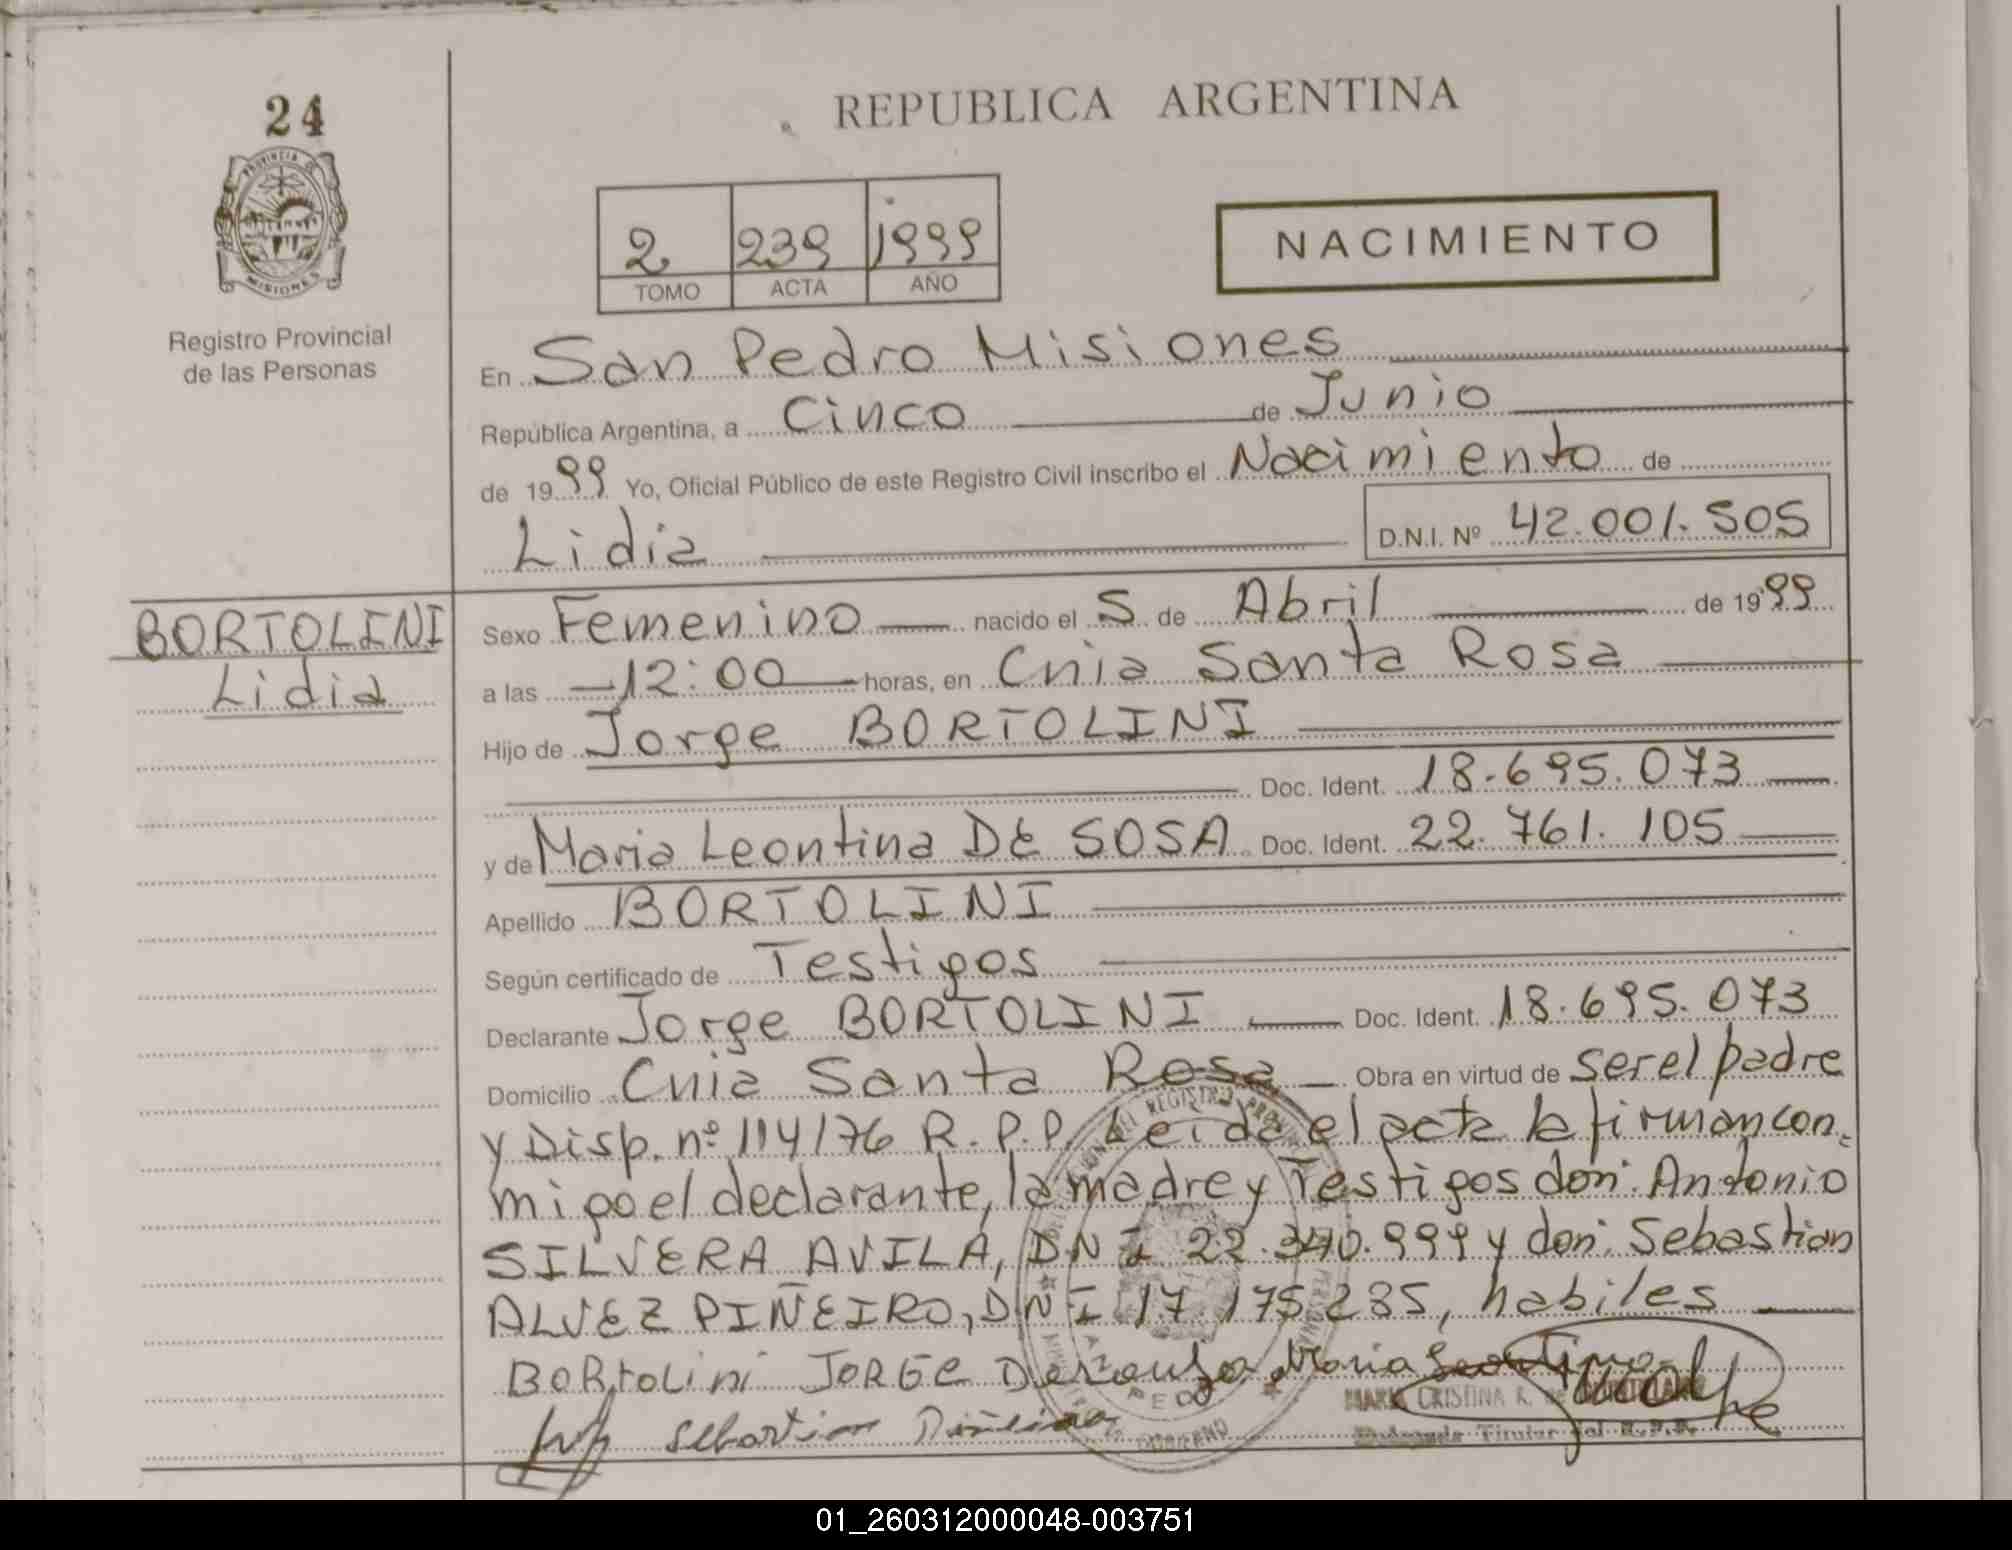 24
PROVINCIA DE
MISIONES
Registro Provincial
de las Personas
REPUBLICA ARGENTINA
2 239 1999
TOMO ACTA AÑO
NACIMIENTO
En San Pedro Misiones
República Argentina, a Cinco de Junio
de 1999 Yo, Oficial Público de este Registro Civil inscribo el Nacimiento de
Lidia D.N.I. Nº 42.001.505
BORTOLINI
Lidia
Sexo Femenino nacido el 5 de Abril de 1999
a las 12:00 horas, en Cnia Santa Rosa
Hijo de Jorge BORTOLINI
Doc. Ident. 18.695.073
y de Maria Leontina DE SOSA Doc. Ident. 22.761.105
Apellido BORTOLINI
Según certificado de Testigos
Declarante Jorge BORTOLINI Doc. Ident. 18.695.073
Domicilio Cnia Santa Rosa Obra en virtud de ser el padre
y Disp. nº 114/76 R.P.P. Leida el acta la firman con-
migo el declarante, la madre y Testigos don: Antonio
SILVERA AVILA, DNI 22.340.999 y don: Sebastian
ALVEZ PIÑEIRO, DNI 17.175.285, habiles
BORtoLini JORGE Maria
MARIA CRISTINA R. DE
Sebastian Piñeiro
Delegada Titular del R.P.P.
01_260312000048-003751